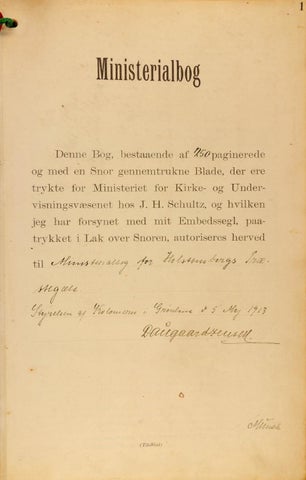 1
Ministerialbog
Denne Bog, bestaaende af 450 paginerede
og med en Snor gennemtrukne Blade, der ere
trykte for Ministeriet for Kirke- og Under-
visningsvæsenet hos J. H. Schultz, og hvilken
jeg har forsynet med mit Embedssegl, paa-
trykket i Lak over Snoren, autoriseres herved
til Ministerialbog for Holstensborgs Præ-
stegæld.
Styrelsen af Kolonierne i Grønland d 5 Maj 1903
Daugaard-Jensen